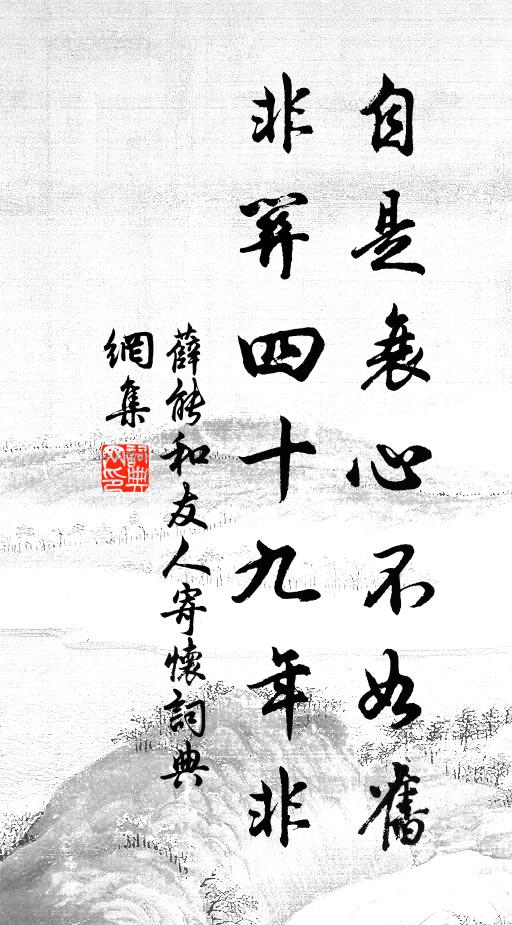 自是衰心不如舊
非關四十九年非
薛能和友人寄懷詞典
網集
詞典網印